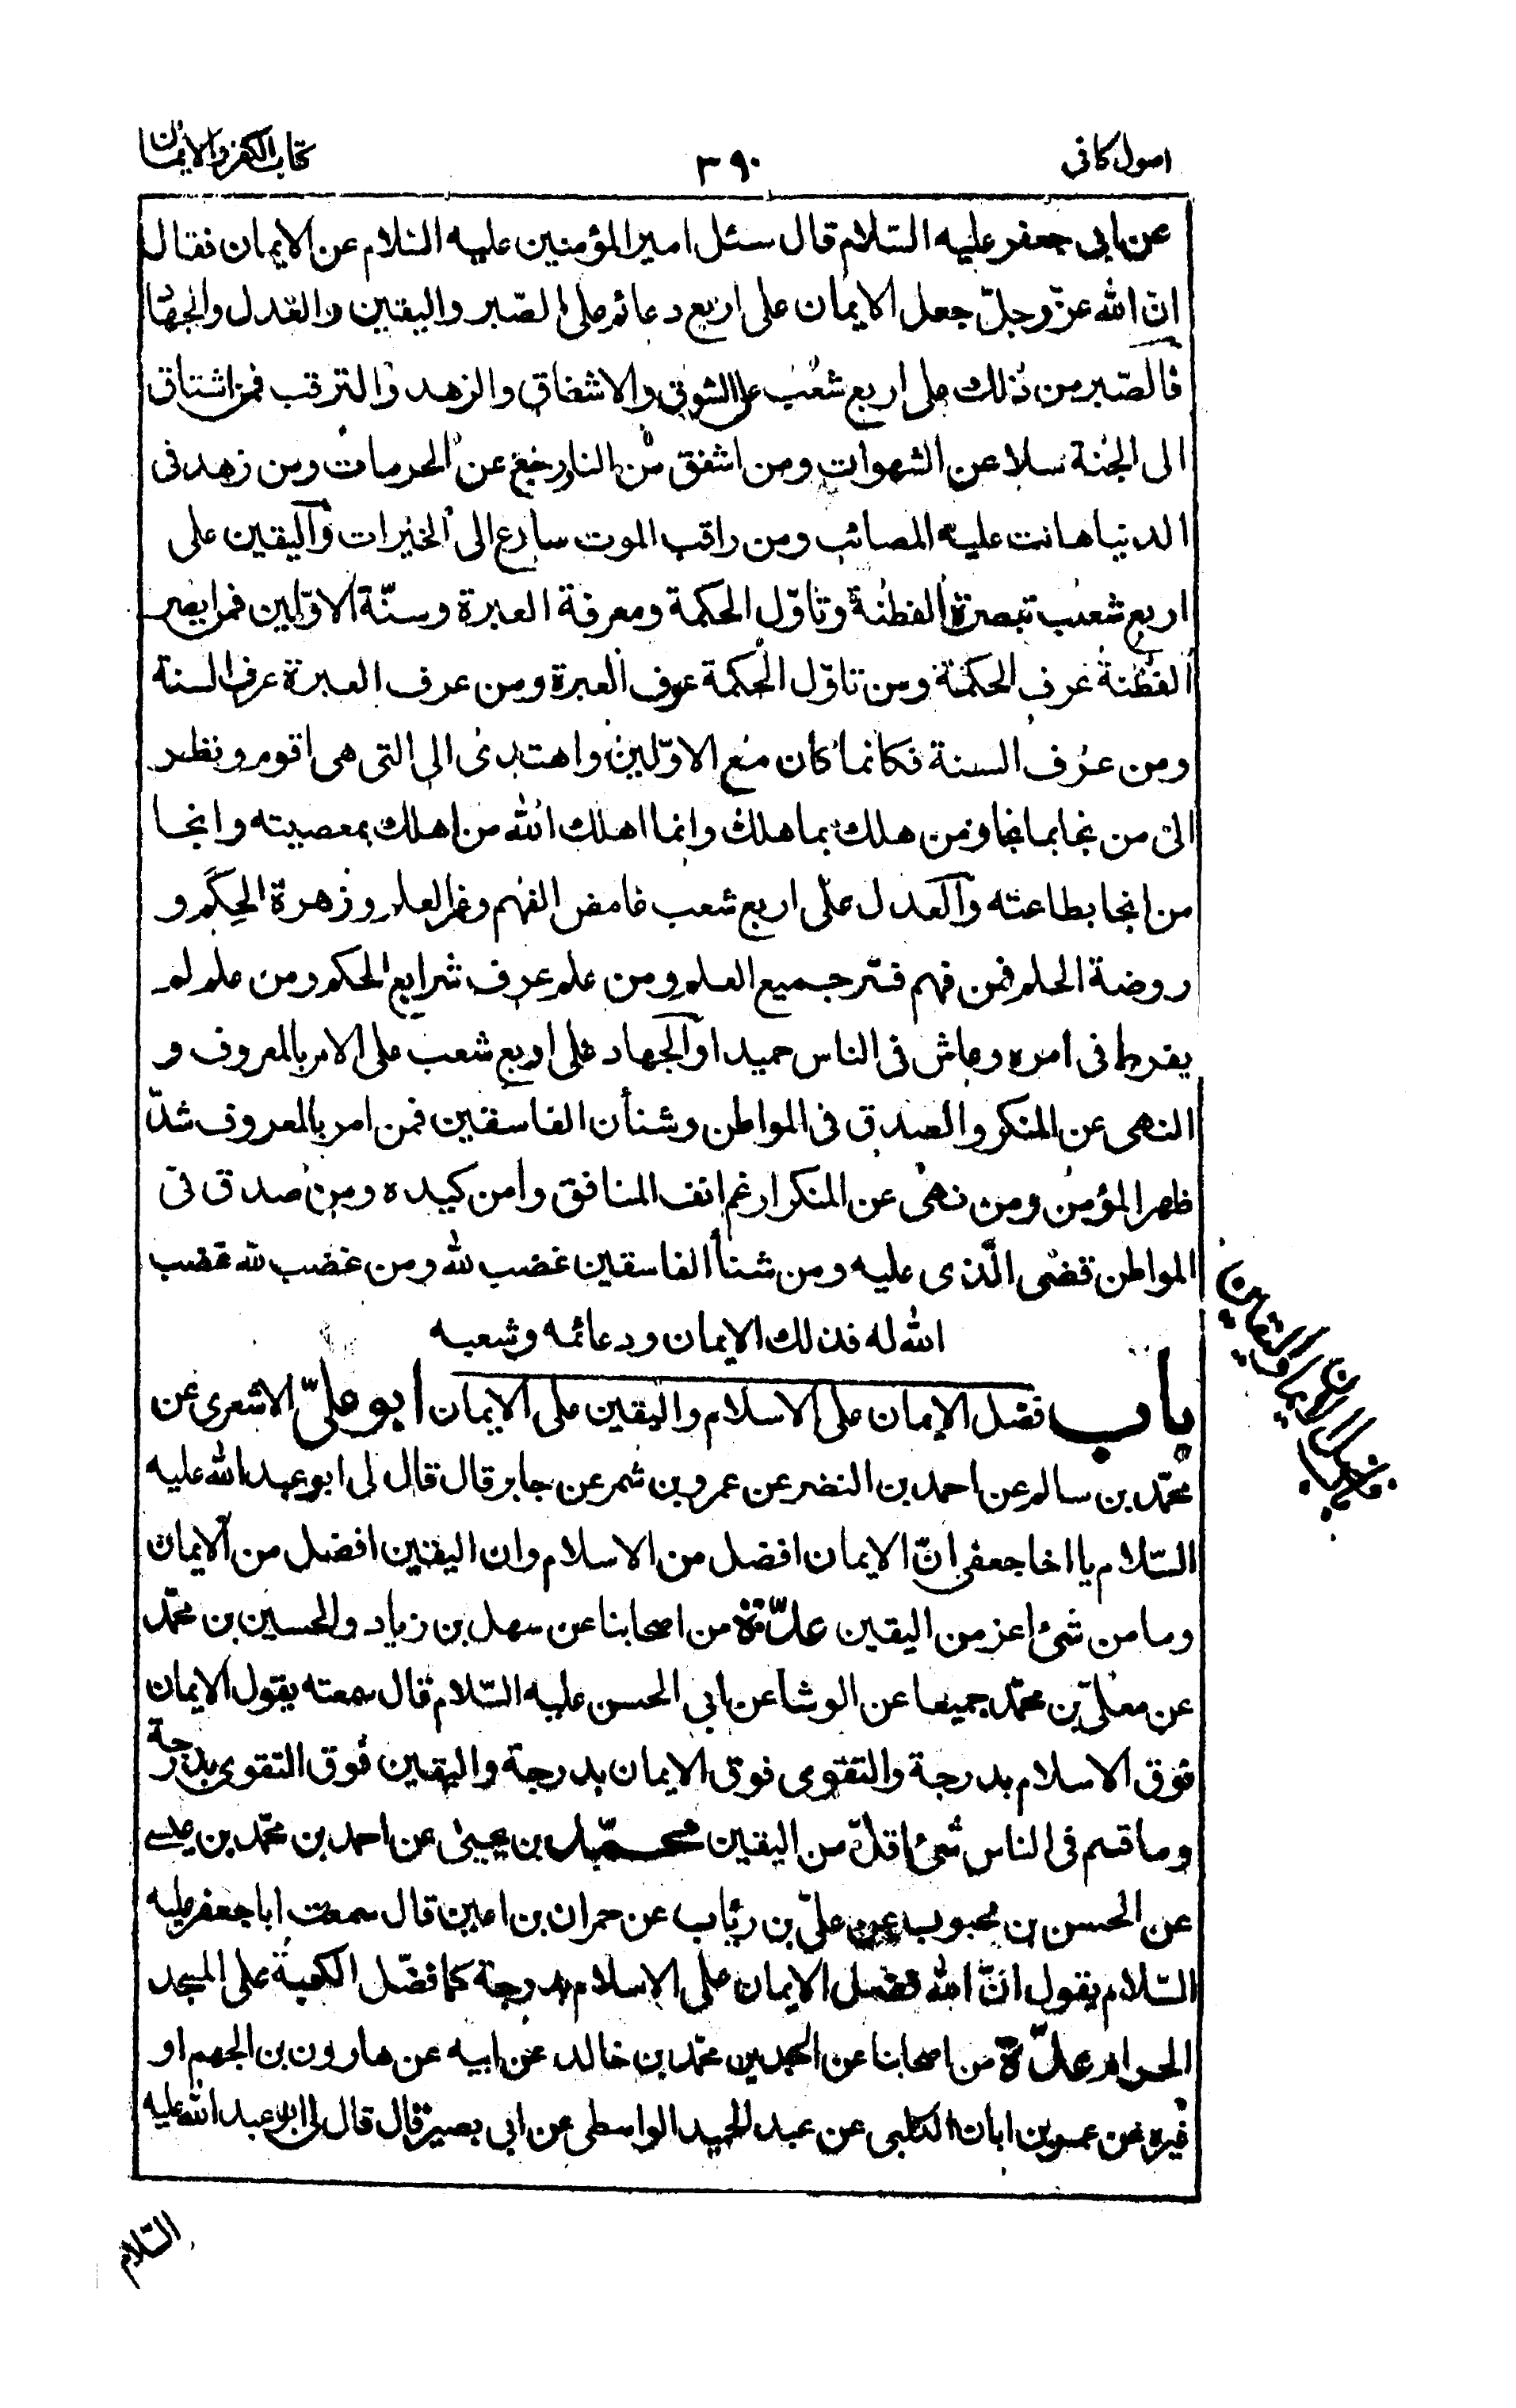 اصول كافى
٣٩٠
كتاب الكفر والايمان
عن ابى جعفر عليه السّلام قال سئل امير المؤمنين عليه السّلام عن الايمان فقال
انّ الله عزّ وجلّ جعل الايمان على اربع دعائم على الصّبر واليقين والعدل والجهاد
فالصّبر من ذلك على اربع شعب على الشوق والاشفاق والزهد والترقب فمن اشتاق
الى الجنة سلا عن الشهوات ومن اشفق من النار رجع عن الحرمات ومن زهد فى
الدنيا هانت عليه المصائب ومن راقب الموت سارع الى الخيرات واليقين على
اربع شعب تبصرة الفطنة وتاوّل الحكمة ومعرفة العبرة وسنّة الاوّلين فمن ابصر
الفطنة عرف الحكمة ومن تاوّل الحكمة عرف العبرة ومن عرف العبرة عرف السنة
ومن عرف السنة فكانما كان مع الاوّلين واهتدى الى التى هى اقوم ونظر
الى من نجا بما نجا ومن هلك بما هلك وانما اهلك الله من اهلك بمعصيته وانجا
من انجا بطاعته والعدل على اربع شعب غامض الفهم وغمر العلم وزهرة الحكم و
روضة الحلم فمن فهم فسّر جميع العلم ومن علم عرف شرايع الحكم ومن حلم لم
يفرط فى امره وعاش فى الناس حميدا والجهاد على اربع شعب على الامر بالمعروف و
النهى عن المنكر والصدق فى المواطن وشنأن الفاسقين فمن امر بالمعروف شدّ
ظهر المؤمن ومن نهى عن المنكر ارغم انف المنافق وامن كيده ومن صدق فى
المواطن قضى الّذى عليه ومن شنأ الفاسقين غضب لله ومن غضب لله غضب
الله له فذلك الايمان ودعائمه وشعبه
باب فضل الايمان على الاسلام واليقين على الايمان ابو علىّ الاشعرى عن
محمّد بن سالم عن احمد بن النضر عن عمرو بن شمر عن جابر قال قال لى ابو عبد الله عليه
السّلام يا اخا جعفى انّ الايمان افضل من الاسلام وان اليقين افضل من الايمان
وما من شئ اعز من اليقين عدّة من اصحابنا عن سهل بن زياد والحسين بن محمّد
عن معلّى بن محمّد جميعا عن الوشا عن ابى الحسن عليه السّلام قال سمعته يقول الايمان
فوق الاسلام بدرجة والتقوى فوق الايمان بدرجة واليقين فوق التقوى بدرجة
وما قسم فى الناس شئ اقلّ من اليقين محمّد بن يحيى عن احمد بن محمّد بن عيسى
عن الحسن بن محبوب عن علىّ بن رئاب عن حمران بن اعين قال سمعت ابا جعفر عليه
السّلام يقول انّ الله فضل الايمان على الاسلام بدرجة كما فضّل الكعبة على المسجد
الحرام عدّة من اصحابنا عن احمد بن محمّد بن خالد عن ابيه عن هارون بن الجهم او
غيره عن عمر بن ابان الكلبى عن عبد الحميد الواسطى عن ابى بصير قال قال لى ابو عبد الله عليه
السّلام